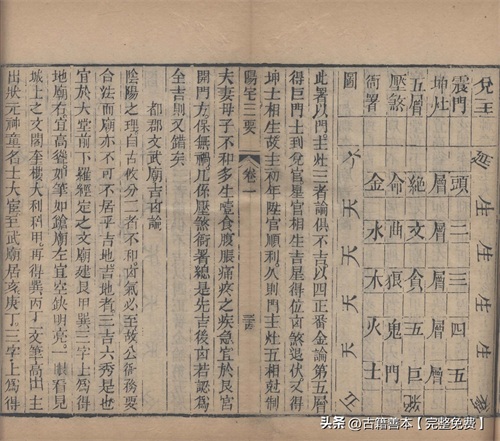 兌王
震門
坤灶
五層
絕命
壓煞
衙署
圖
頭層
二層
三層
四層
五層
金
水
木
火
土
延
生
生
生
六
天
天
天
天
五
此署以門主灶三者論俱不吉以四正番金論第五層
得巨門土到兌宮星宮相生吉星得位凶煞退伏又得
坤土相生故主初年陞官順利久則門主灶五相尅制
陽宅三要
卷一
夫妻母子不和多生噎食腹脹痛疼之疾急宜於艮宮
開門方保無禍凡係壓煞衙署總是先吉後凶若認為
全吉則又錯矣
都郡文武廟吉凶論
陰陽之理自古攸分二者不和凶氣必至故公衙務要
合法而廟亦不可不居乎吉地吉地者三吉六秀是也
宜於大堂前下羅經定之文廟建艮甲巽三字上為得
地廟右宜高聳如筆如鎗廟左宜空缺明亮一 看見
城上之文閣奎樓大利科甲再得巽丙丁三文筆高出主
出狀元神童名士大宦至武廟居亥庚丁三字上為得
头条 @古籍善本【完整免费】